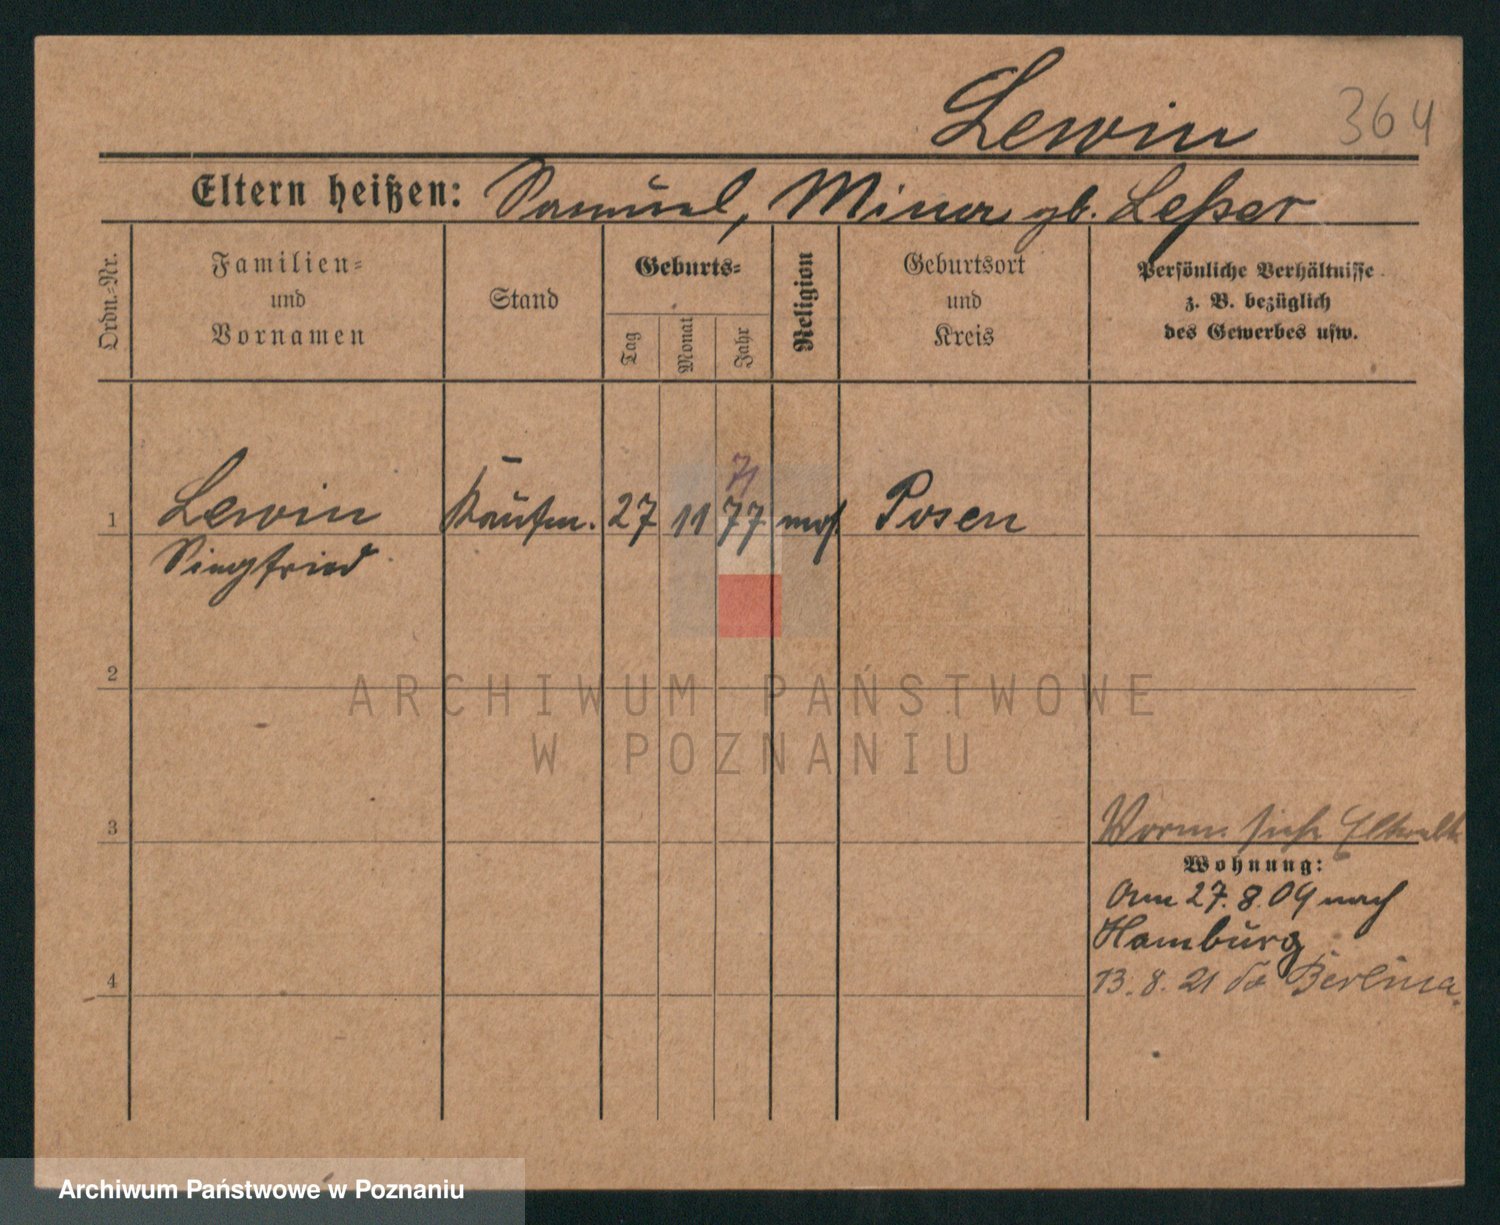 Lewin
364
Eltern heißen: Samuel, Mina gb. Leßer
Ordn.-Nr.
Familien-
und
Vornamen
Stand
Geburts-
Tag
Monat
Jahr
Religion
Geburtsort
und
Kreis
Persönliche Verhältnisse
z. B. bezüglich
des Gewerbes usw.
71
1 Lewin Kaufm. 27 11 77 mos. Posen
Siegfried
2
ARCHIWUM PAŃSTWOWE
W POZNANIU
3
Vorm. siehe
Wohnung:
Am 27.8.09 nach
Hamburg
13.8.21 do
4
Archiwum Państwowe w Poznaniu